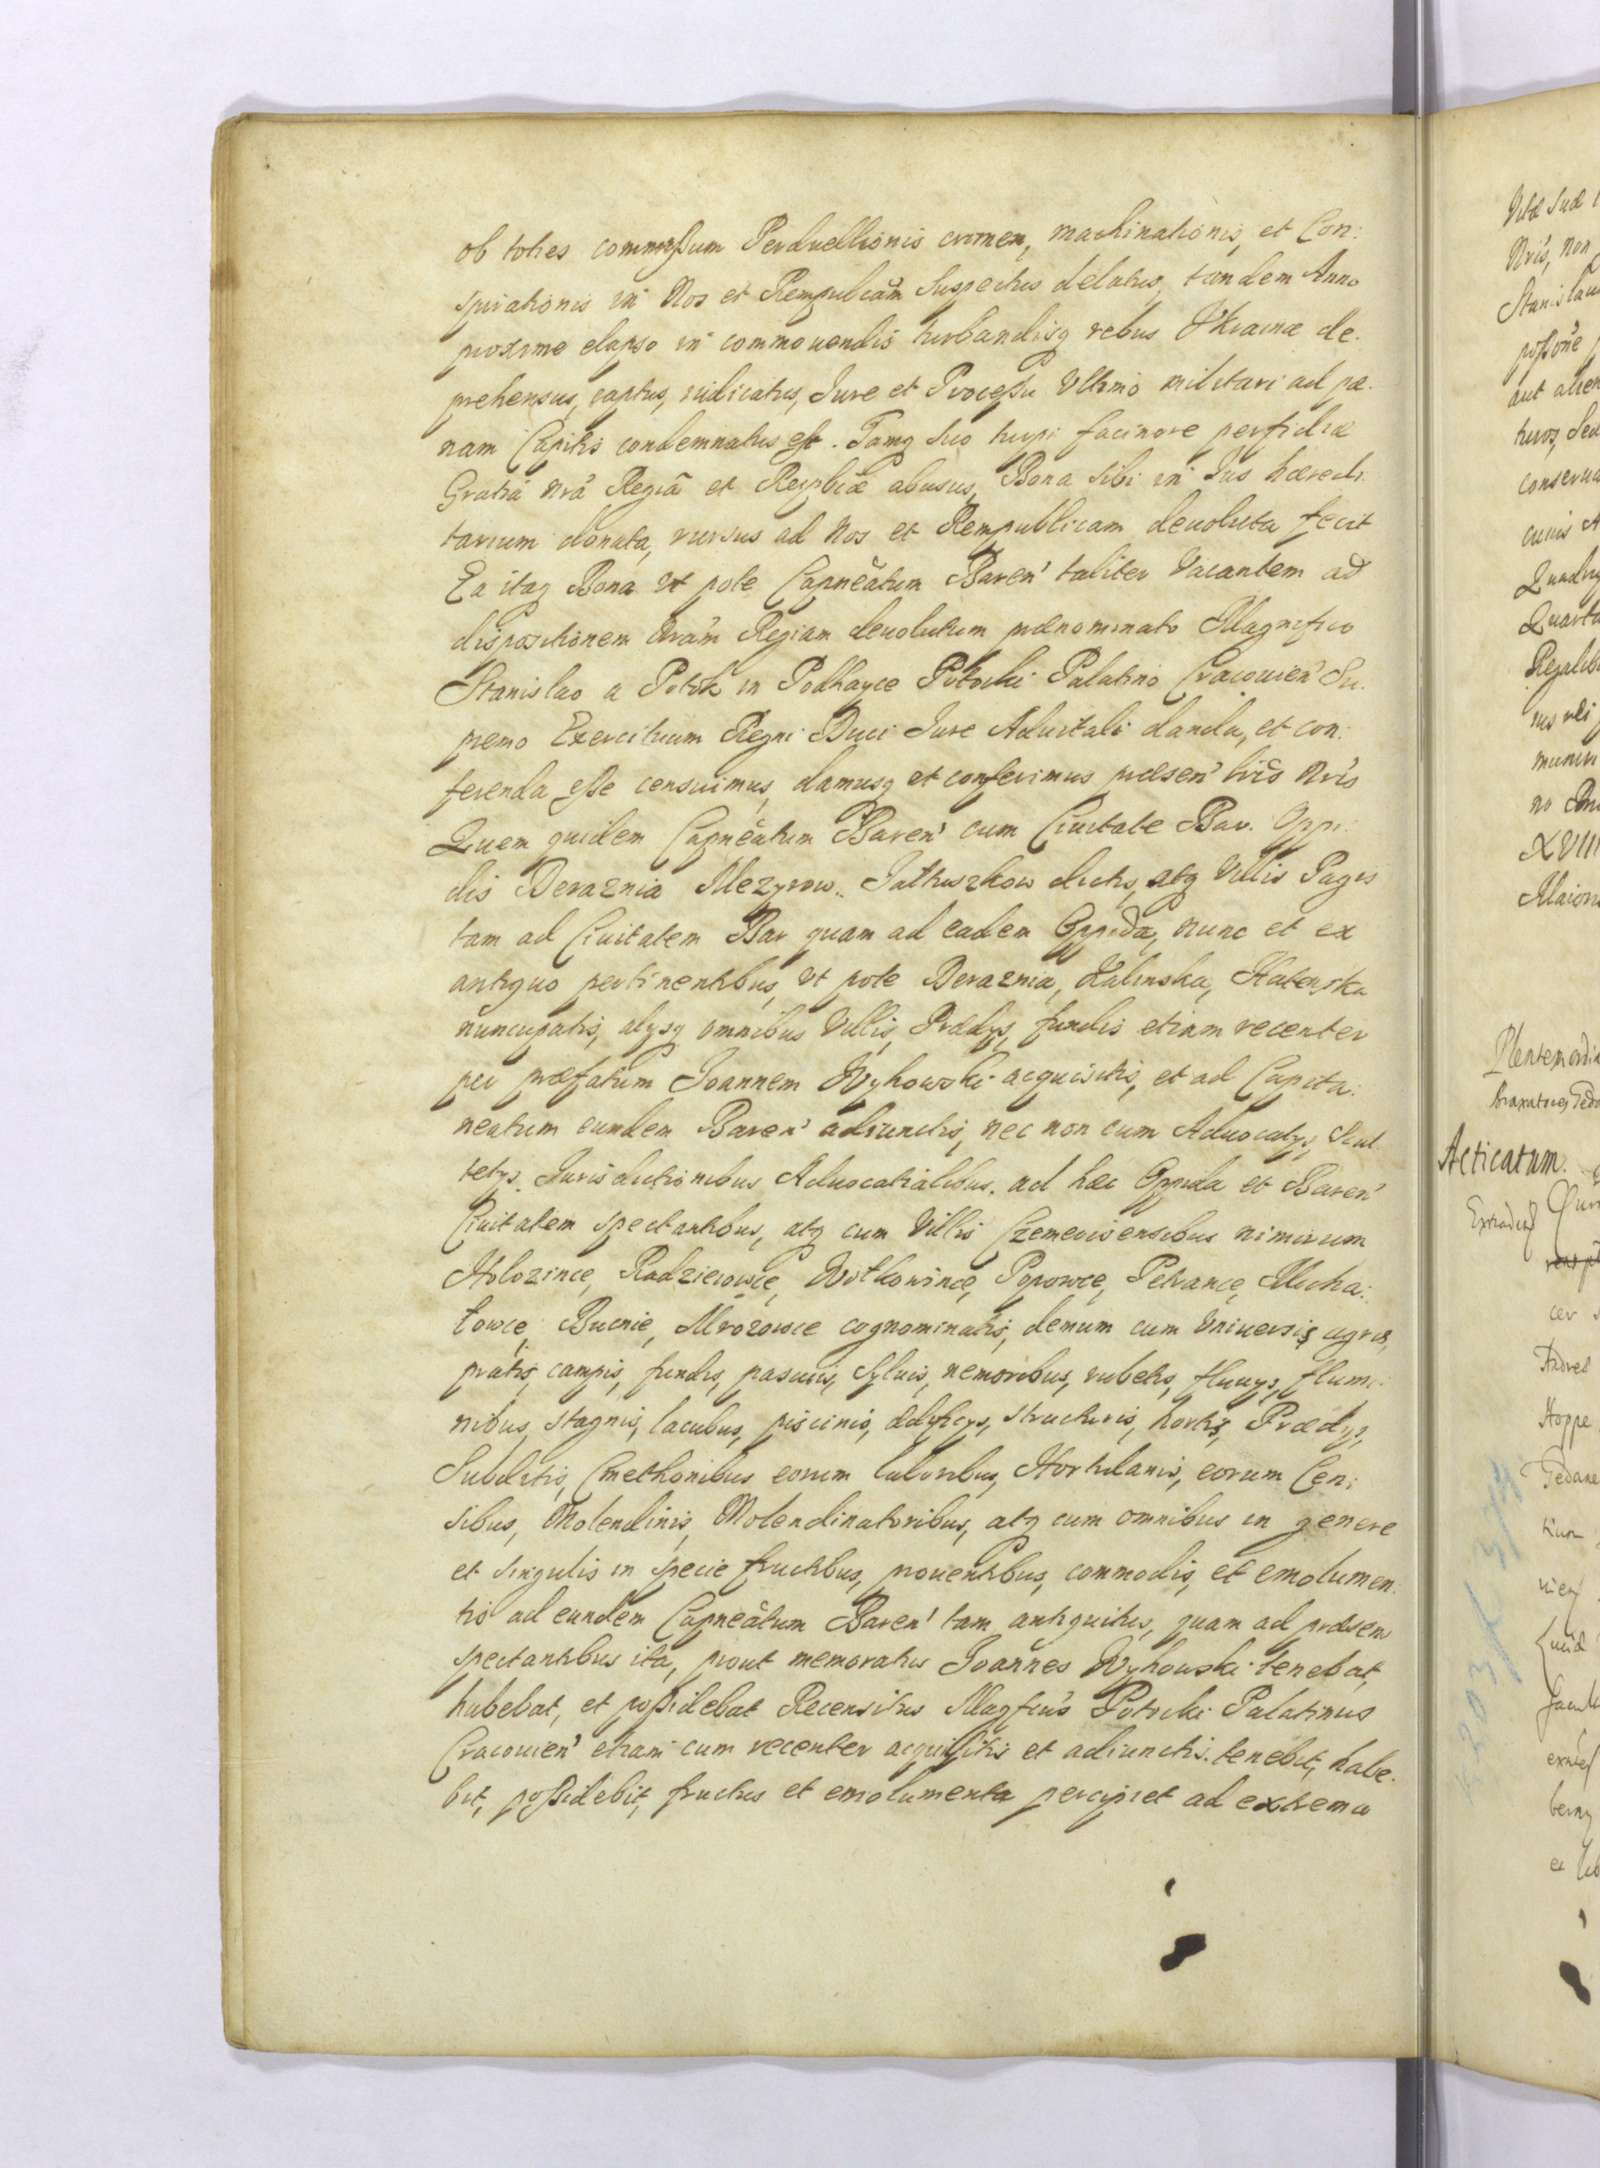 ob toties commißum Perduellionis crimen, machinationis, et Con:
spirationis in Nos et Rempubcam suspectus delatus, tandem Anno
proxime elapso in commouendis turbandisq rebus Vkrainæ de:
prehensus, captus, iudicatus, Iure et Proceßu Ultimo militari ad pæ:
nam Capitis condemnatus est. Tamq suo turpi facinore perfidiæ
Gratiâ nrâ Regiâ et Reipbcæ abusus, Bona sibi in Ius hæredi:
tarium donata, rursus ad Nos et Rempublicam deuoluta fecit
Ea itaq Bona ut pote Capneatum Baren' taliter Vacantem ad
dispositionem Nram Regiam deuolutum prænominato Magnifico
Stanislao a Potok in Podhayce Potocki Palatino Cracouien' Su:
premo Exercituum Regni Duci Iure Aduitali danda, et con:
ferenda eße censuimus, damusq et conferimus præsen' lris Nris
Quem quidem Capneatum Baren' cum Ciuitate Bar. Oppi:
dis Deraznia Mezyrow. Iałtuszkow dictis, atq Villis Pagis
tam ad Ciuitatem Bar quam ad eadem Oppida, nunc et ex
antiquo pertinentibus, ut pote Deraznia, Kalinska,
nuncupatis, alysq omnibus Villis, Prædys, fundis etiam recenter
per præfatum Ioannem Wyhowski acquisitis, et ad Capita:
neatum eundem Baren' adiunctis, nec non cum Aduocatys, Scul
tetys. Iurisdictionibus Aduocatialibus. ad hæc Oppida et Baren'
Ciuitatem spectantibus, atq cum Villis Czemerisensibus nimirum
Hołozince, Radzieiowce, Wołkowince, Popowce, Petrance, Micha:
łowce, Bucnie, Mrozowce cognominatis, demum cum Vniuersis agris,
pratis, campis, fundis, pascuis, syluis, nemoribus, rubetis, fluuys, flumi:
nibus, stagnis, lacubus, piscinis, ædificys, structuris, hortis, Prædys,
Subditis, Cmethonibus eorum laboribus, Hortulanis, eorum Cen:
sibus, Molendinis, Molendinatoribus, atq cum omnibus in genere
et singulis in specie fructibus, prouentibus, commodis, et emolumen:
tis ad eundem Capneatum Baren' tam antiquitus, quam ad præsens
spectantibus ita, prout memoratus Ioannes Wyhowski tenebat,
habebat, et poßidebat Recensitus Magfcus Potocki Palatinus
Cracouien' etiam cum recenter acquisitis et adiunctis. tenebit, habe:
bit, poßidebit, fructus et emolumenta percipiet ad extrema
Vitæ Suæ
Nris, non
Stanislau
poßone
aut alien
turos, Sed
conserua
cuius
Quadrag
Quarta
Regalib
munir
no
XVIII
Maiori
Acticatum.
cer
Hoppe
Gedane